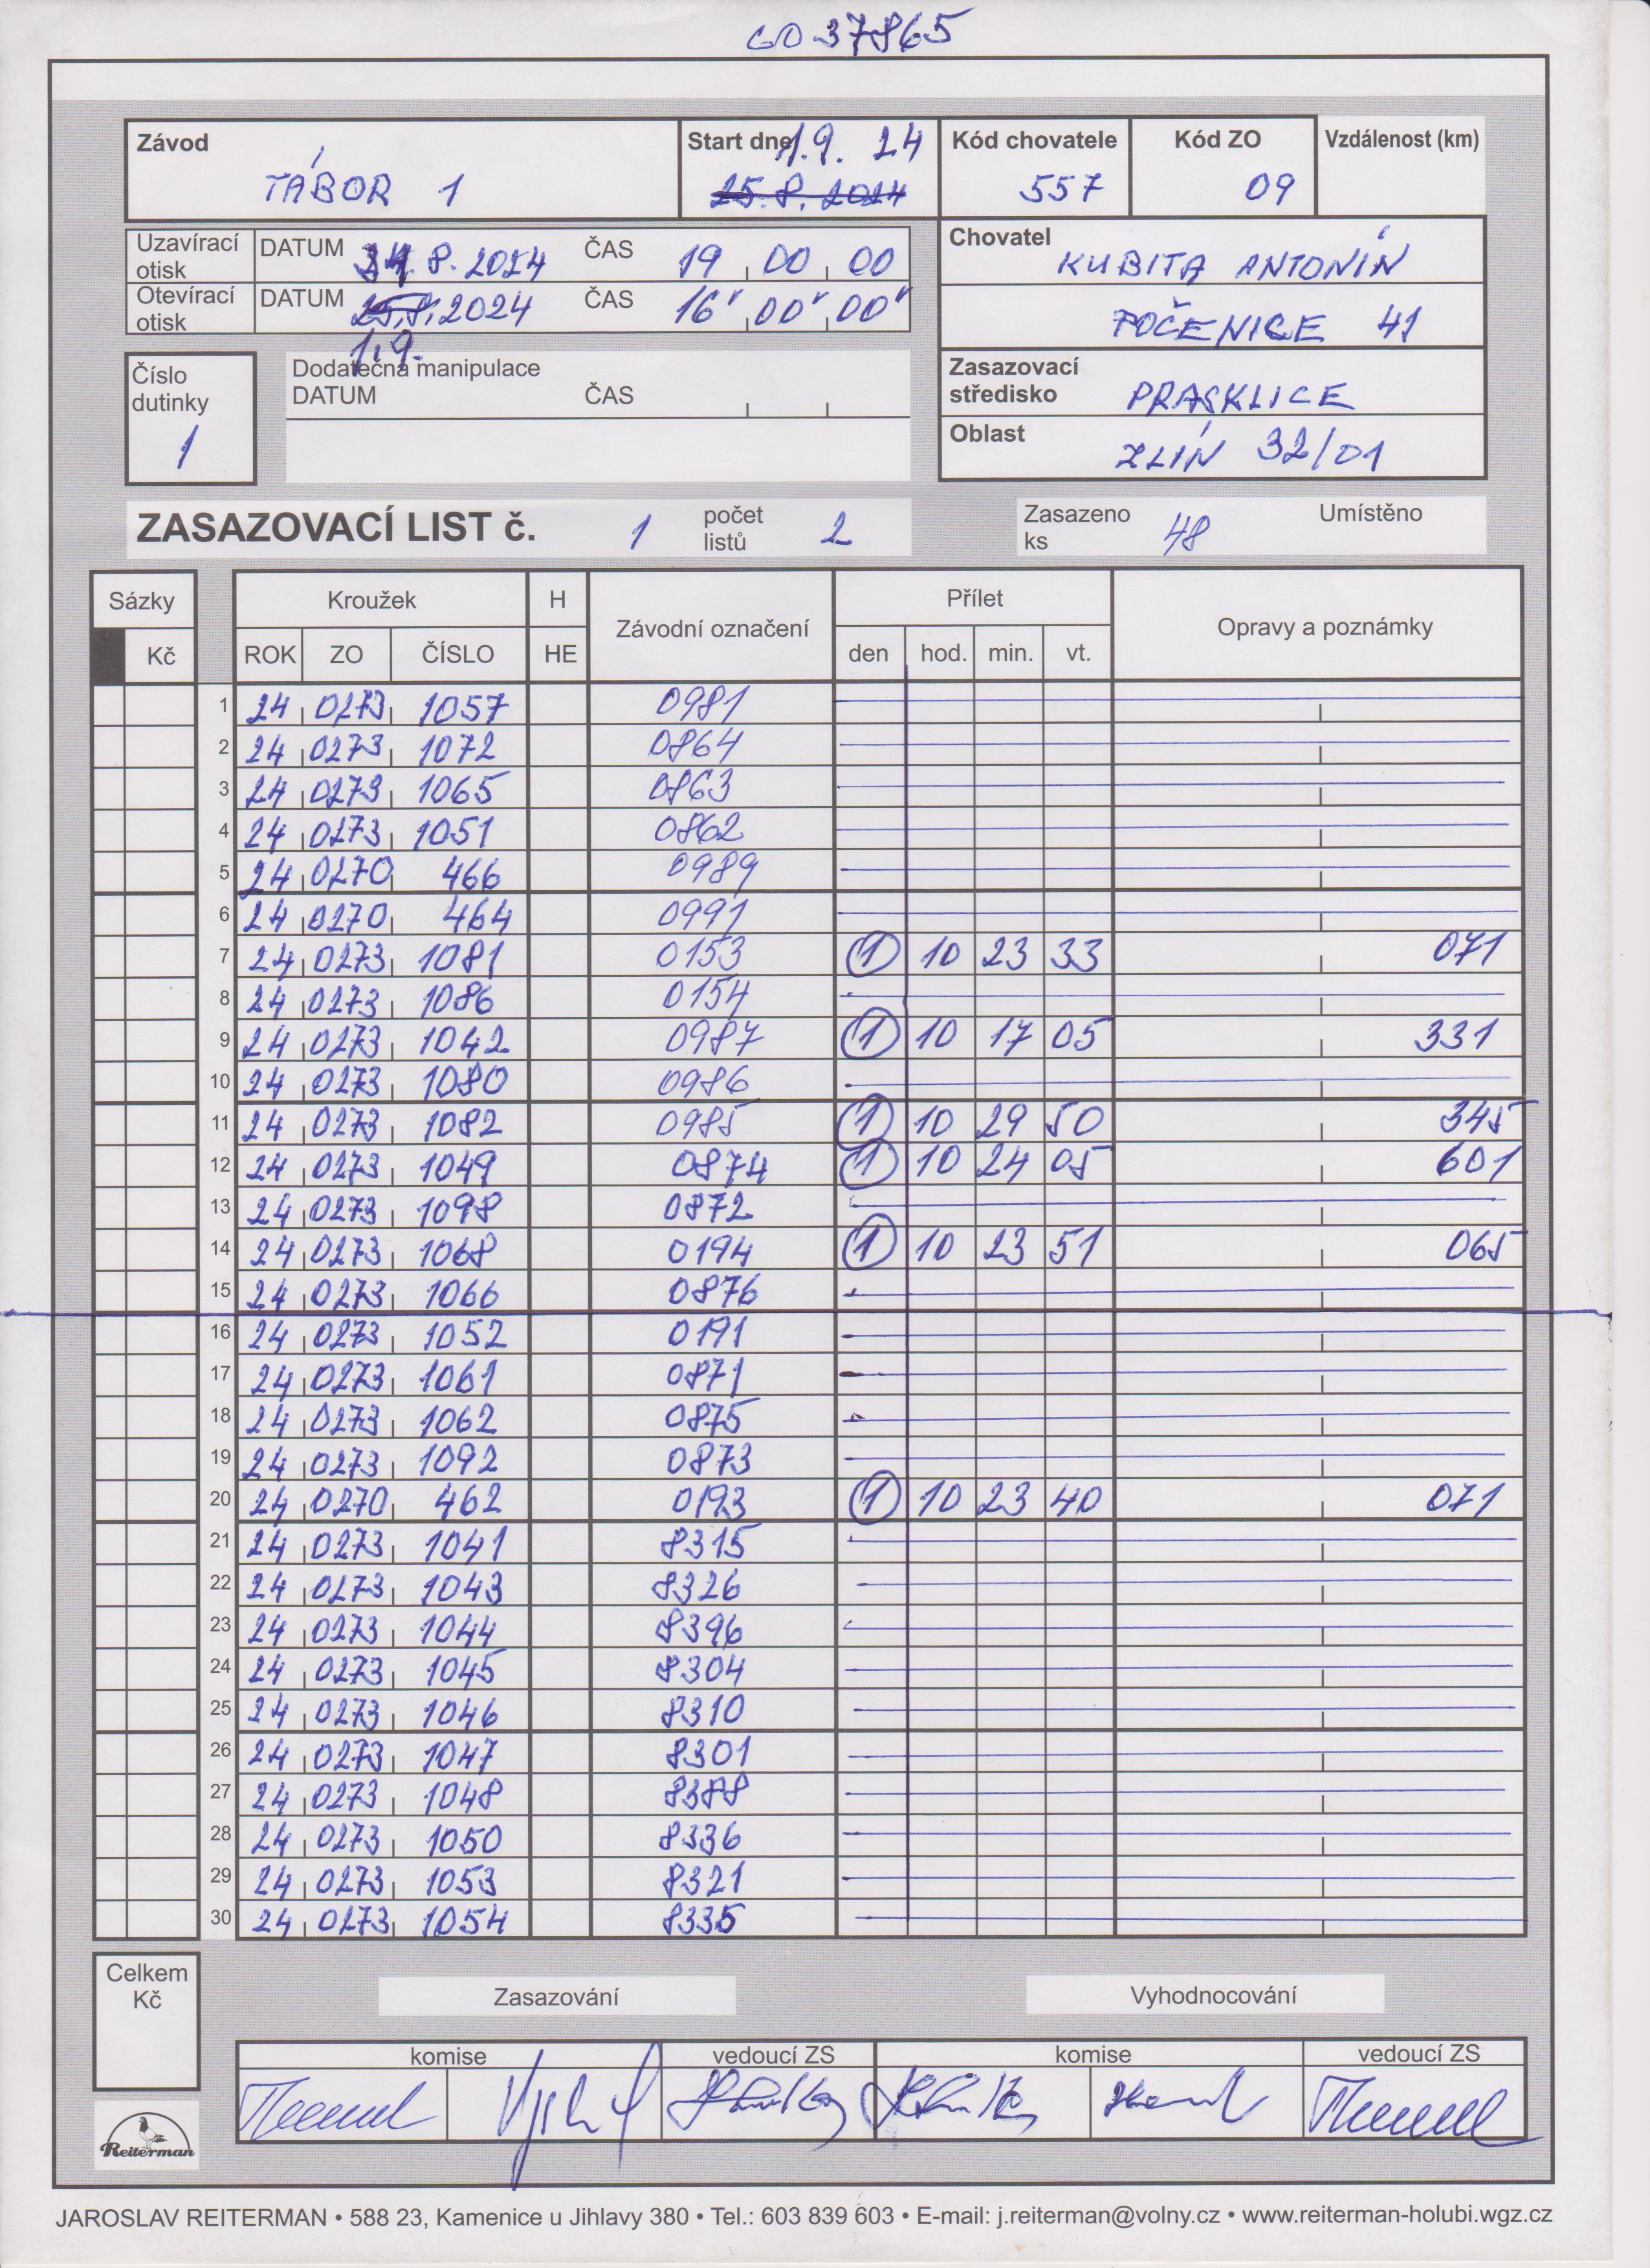 GO 37865
Závod Start dne 1.9. 24 Kód chovatele Kód ZO Vzdálenost (km)
TÁBOR 1 25.8.2024 557 09
Uzavírací otisk DATUM 31.8.2024 ČAS 19 00 00
Otevírací otisk DATUM 25.8.2024 ČAS 16 00 00
1.9.
Chovatel KUBITA ANTONÍN
POČENICE 41
Číslo dutinky 1
Dodatečná manipulace
DATUM ČAS
Zasazovací středisko PRASKLICE
Oblast ZLÍN 32/01
ZASAZOVACÍ LIST č. 1 počet listů 2 Zasazeno ks 48 Umístěno
Sázky Kroužek H Závodní označení Přílet Opravy a poznámky
Kč ROK ZO ČÍSLO HE den hod. min. vt.
1 24 0273 1057 0981
2 24 0273 1072 0864
3 24 0273 1065 0863
4 24 0273 1051 0862
5 24 0270 466 0989
6 24 0270 464 0991
7 24 0273 1081 0153 1 10 23 33 071
8 24 0273 1086 0154
9 24 0273 1042 0987 1 10 17 05 331
10 24 0273 1080 0986
11 24 0273 1082 0985 1 10 29 50 345
12 24 0273 1049 0874 1 10 24 05 601
13 24 0273 1098 0872
14 24 0273 1068 0194 1 10 23 51 065
15 24 0273 1066 0876
16 24 0273 1052 0191
17 24 0273 1061 0871
18 24 0273 1062 0875
19 24 0273 1092 0873
20 24 0270 462 0193 1 10 23 40 071
21 24 0273 1041 8315
22 24 0273 1043 8326
23 24 0273 1044 8396
24 24 0273 1045 8304
25 24 0273 1046 8310
26 24 0273 1047 8301
27 24 0273 1048 8388
28 24 0273 1050 8336
29 24 0273 1053 8321
30 24 0273 1054 8335
Celkem Kč
Zasazování Vyhodnocování
komise vedoucí ZS komise vedoucí ZS
Reiterman
JAROSLAV REITERMAN • 588 23, Kamenice u Jihlavy 380 • Tel.: 603 839 603 • E-mail: j.reiterman@volny.cz • www.reiterman-holubi.wgz.cz